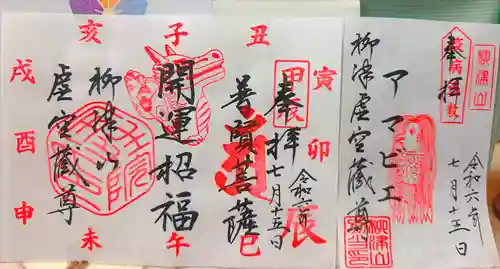 奉拝
柳津山
令和六年
七月十五日
アマビエ
柳津虚空蔵尊
子
丑
寅
卯
辰
巳
午
未
申
酉
戌
亥
奉拝
令和六年
七月十五日
普賢菩薩
開運招福
柳津山
虚空蔵尊